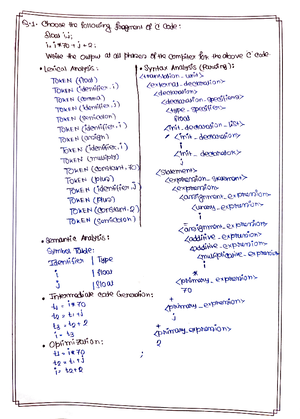 Q-1. Choose the following fragment of 'C' Code:
float i,j;
i = i*70 + j + 2;
Write the output at all phases of the compiler for the above 'C' code
• Lexical Analysis:
TOKEN (float)
TOKEN (identifier, i)
TOKEN (comma)
TOKEN (identifier, j)
TOKEN (semicolon)
TOKEN (identifier, i)
TOKEN (assign)
TOKEN (identifier, i)
TOKEN (multiply)
TOKEN (constant, 70)
TOKEN (plus)
TOKEN (identifier, j)
TOKEN (plus)
TOKEN (constant, 2)
TOKEN (semicolon)
• Syntax Analysis (Parsing):
<translation_unit>
<external_declaration>
<declaration>
<declaration_specifiers>
<type_specifier>
float
<init_declaration_list>
<init_declarator>
i
<init_declarator>
j
<statement>
<expression_statement>
<expression>
<assignment_expression>
<unary_expression>
i
=
<assignment_expression>
<additive_expression>
<additive_expression>
<multiplicative_expression>
i
*
<primary_expression>
70
+
<primary_expression>
j
+
<primary_expression>
2
;
• Semantic Analysis:
Symbol Table:
Identifier | Type
i | float
j | float
• Intermediate Code Generation:
t1 = i*70
t2 = t1+j
t3 = t2+2
i = t3
• Optimization:
t1 = i*70
t2 = t1+j
i = t2+2